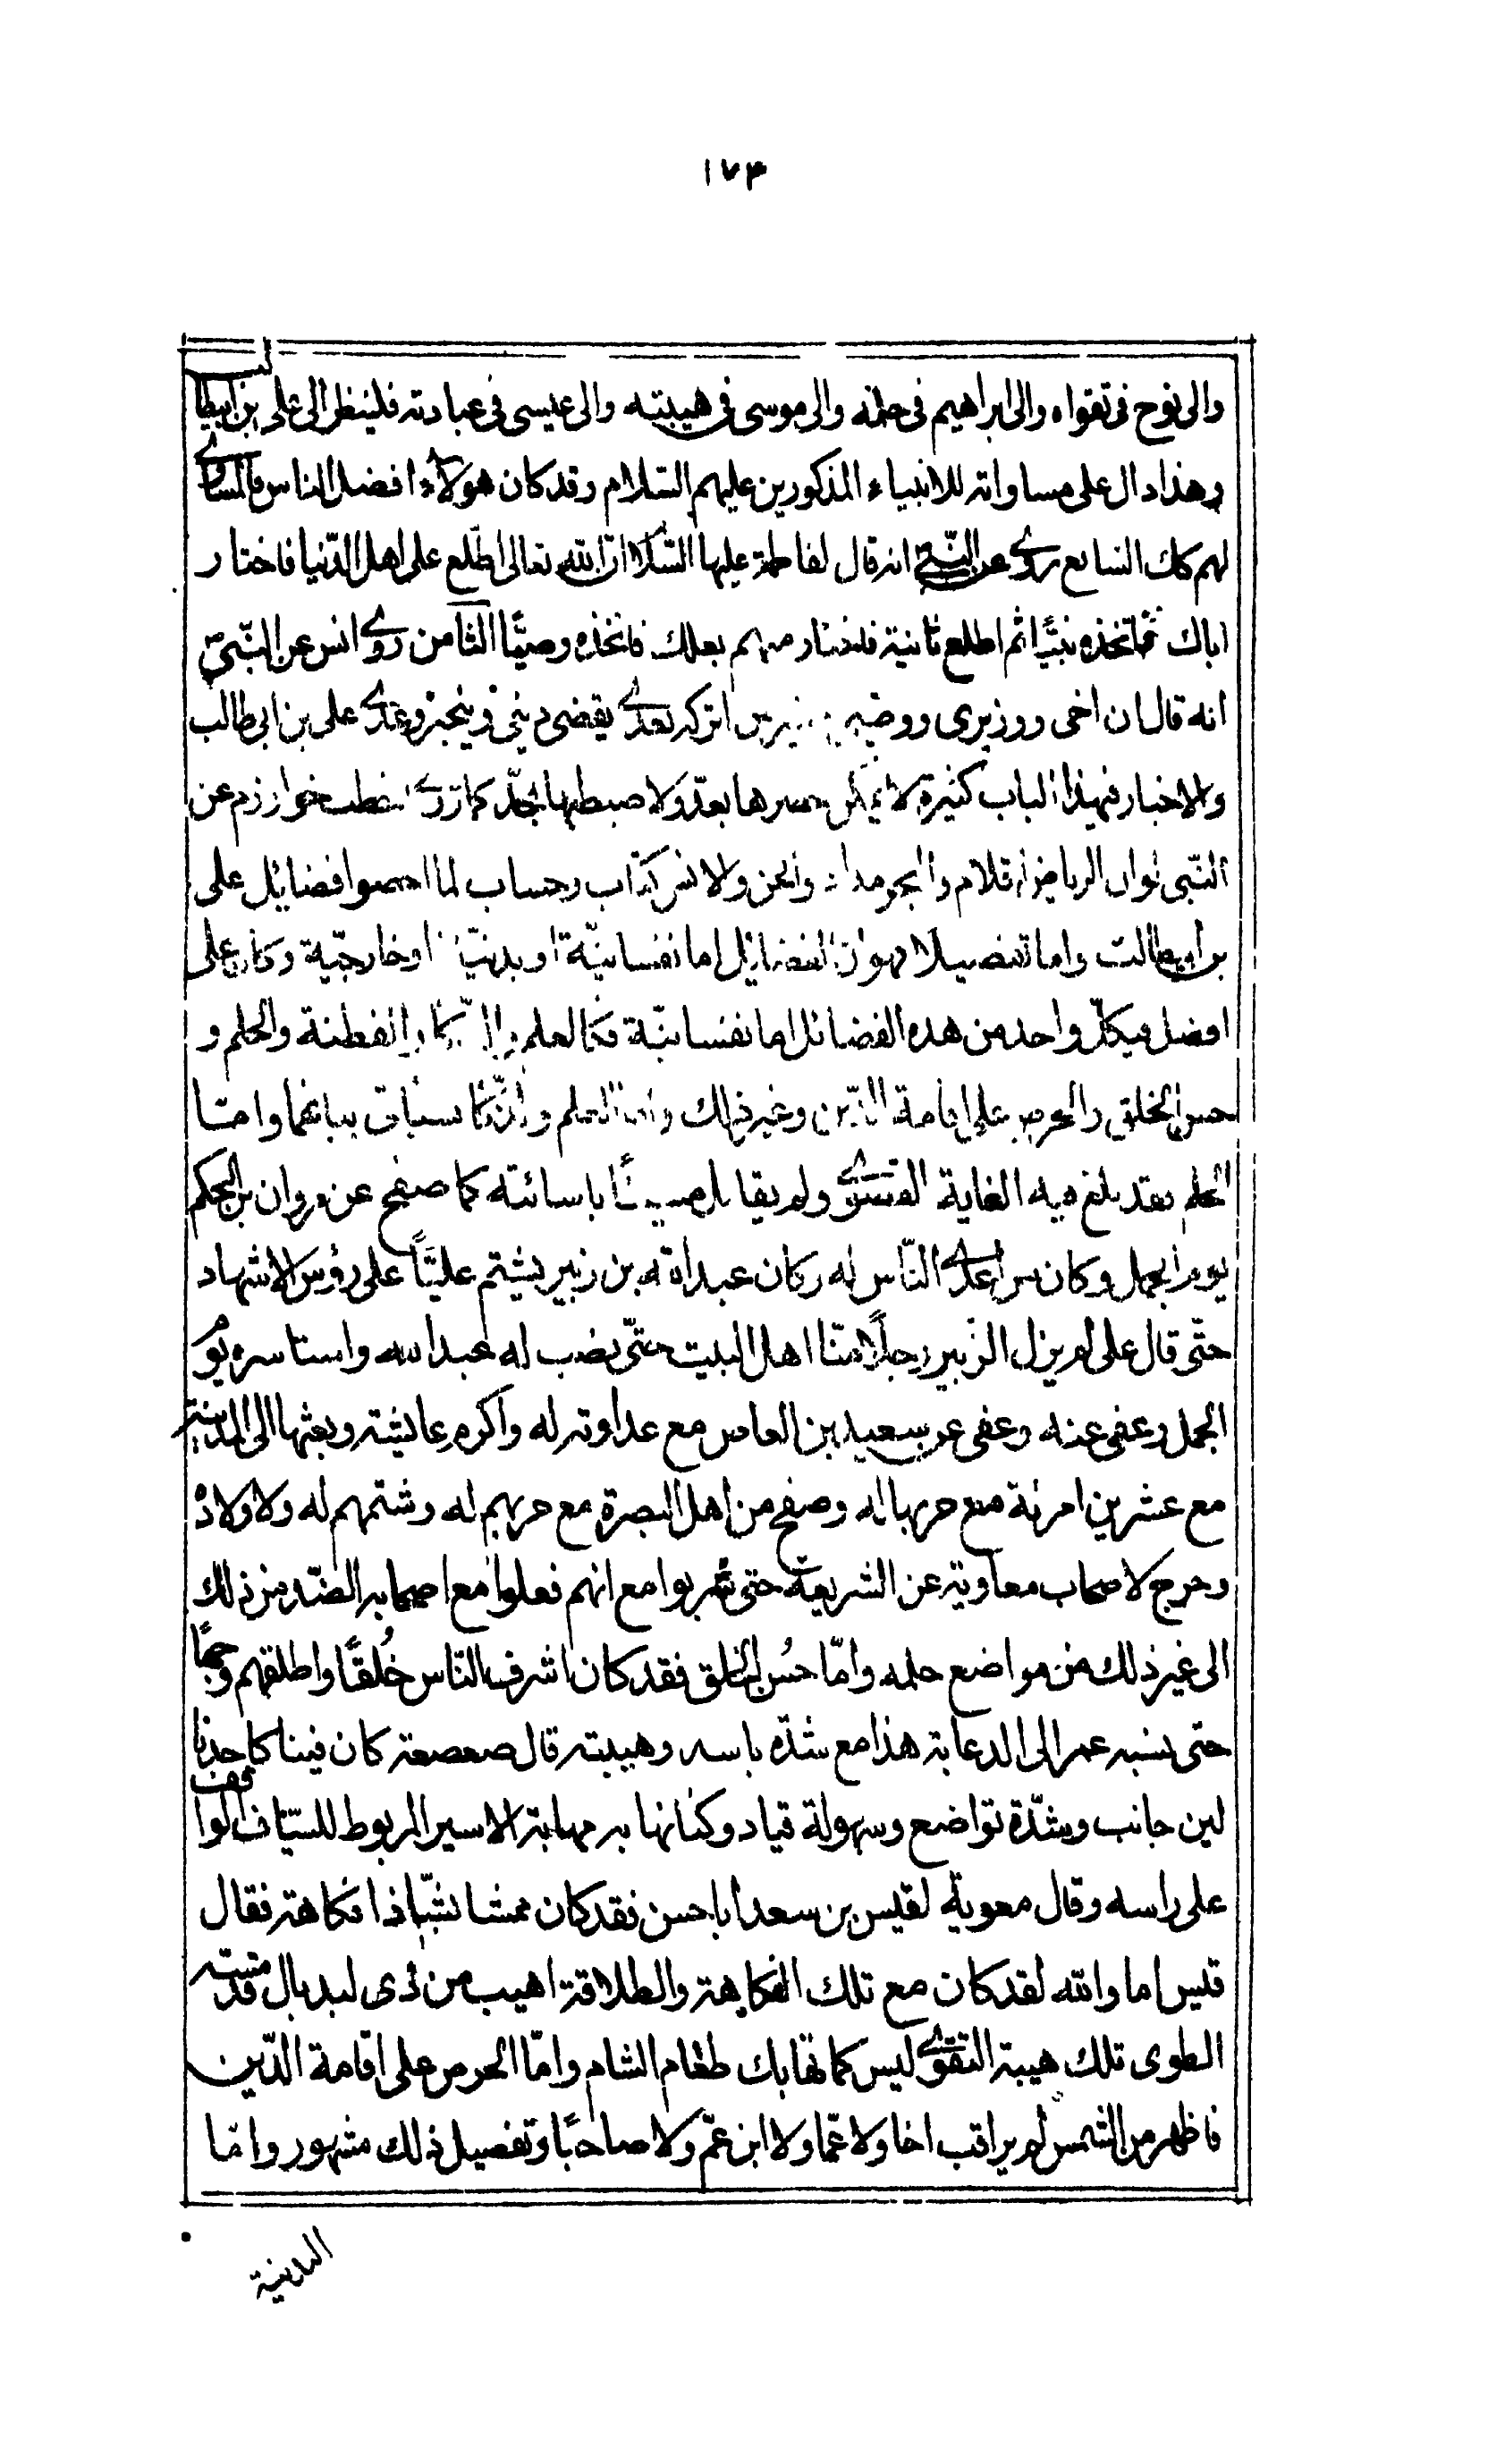 ١٧٣
والى نوح فى تقواه والى ابراهيم فى حلمه والى موسى فى هيبته والى عيسى فى عبادته فلينظر الى على بن ابيطالب
وهذا دال على مساواته للانبياء المذكورين عليهم السّلام وقد كان هؤلاء افضل الناس فالمساوى
لهم كك السابع روى عن النّبى انه قال لفاطمة عليها السّلام انّ الله تعالى اطّلع على اهل الدّنيا فاختار
اباك فاتخذه نبيًّا ثم اطلع ثانية فاختار منهم بعلك فاتخذه وصيًّا الثامن روى انس عن النّبىّ
انه قال ان اخى ووزيرى و اتركه بعدى يقضى دينى وينجز وعدى على بن ابى طالب
والاخبار فيهذا الباب كثيرة لا يمكن حصرها بعدّ ولا ضبطها بحدّ كما روى اخطب خوارزم عن
النّبى لو ان الرياض اقلام والبحر مداد والجن والانس كتاب وحساب لما احصوا فضايل على
بن ابيطالب واما تفصيلا فهو انّ الفضايل اما نفسانيّة او بدنيّة اوخارجيّة وكان على
افضل فيكلّ واحد من هذه الفضائل اما نفسانيّة فكالعلم والذّكاء والفطنة والحلم و
حسن الخلق والحرص على اقامة الدّين وغير ذلك اما العلم والذّكا بيانهما وامّا
الحلم فقد بلغ فيه الغاية القصوى ولم يقابل مسيئًا باسائته كما صفح عن مروان بن الحكم
يوم الجمل وكان من اعدى النّاس له وكان عبدالله بن زبير يشتم عليًّا على رؤس الاشهاد
حتّى قال على لم يزل الزّبير رجلًا منّا اهل البيت حتّى نضب له عبدالله واستاسره يوم
الجمل وعفى عنه وعفى عن سعيد بن العاص مع عداوته له واكرم عايشة وبعثها الى المدينة
مع عشرين امرئة مع حربها له وصفح من اهل البصرة مع حربهم له وشتمهم له ولاولاده
وحرج لاصحاب معاوية عن الشريعة حتى شربوا مع انهم فعلوا مع اصحابه الضدّ من ذلك
الى غير ذلك من مواضع حلمه وامّا حسُن الخلق فقد كان اشرف النّاس خُلقًا واطلقهم وجهًا
حتى نسبه عمر الى الدعابة هذا مع شدّة باسه وهيبته قال صعصعة كان فينا كاحدنا
لين جانب وشدّة تواضع وسهولة قياد وكنّا نهابه مهابة الاسير المربوط للسيّاف الواقف
على راسه وقال معوية لقيس بن سعد اباحسن فقد كان هشا بشّا ذا فكاهة فقال
قيس اما والله لقد كان مع تلك الفكاهة والطلاقة اهيب من ذى لبد بال قد مسّه
الطوى تلك هيبة التقوى ليس كما تهابك طغام الشام وامّا الحرص على اقامة الدّين
فاظهر من الشمس لم يراقب اخا ولا عمّا ولا ابن عمّ ولا صاحبًا وتفصيل ذلك مشهور وامّا
البدنية